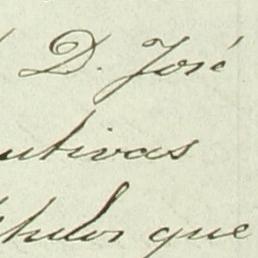 D. José
utivas
titulos que